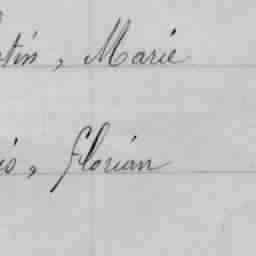 tin, Marie
is, Florian